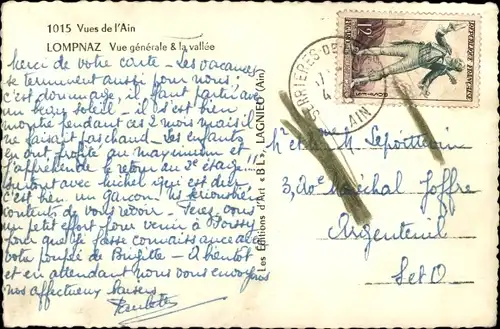 1015 Vues de l'Ain
LOMPNAZ Vue générale & la vallée
Merci de votre carte. Les vacances
se terminent aussi pour nous.
c'est dommage, il faut partir au
un beau soleil - il s'est bien
montré pendant ces 2 mois mais il
ne faisait pas chaud. Les enfants
en ont profité au maximum et
j'appréhende le retour au 2e étage !!
surtout avec Michel qui est dur,
c'est bien un Garçon. Ils seront bien
contents de vous revoir. Ferez vous
un petit effort pour venir à Poissy
pour que je fasse connaissance avec
votre poupée de Brigitte - A bientôt
et en attendant nous vous envoyons
nos affectueux baisers
Paulette
Les Editions d'Art « B L », LAGNIEU (Ain)
SERRIERES-DE-
AIN
12F
POSTES
REPUBLIQUE FRANÇAISE
Mr et Mme
3, Rue Maréchal Joffre
Argenteuil
S et O